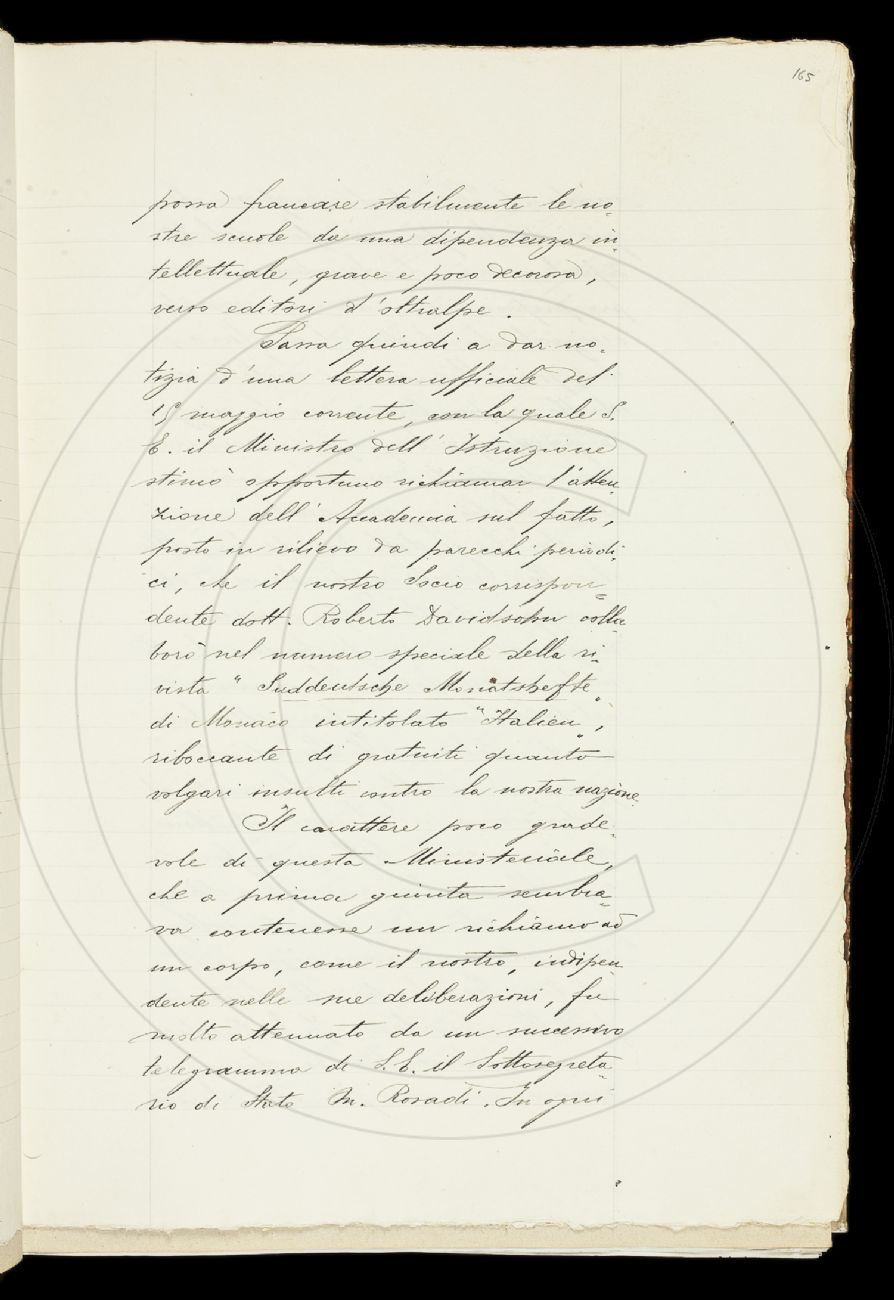 165
possa francare stabilmente le no-
stre scuole da una dipendenza in-
tellettuale, grave e poco decorosa,
verso editori d'oltralpe.
Passa quindi a dar no-
tizia d'una lettera ufficiale del
15 maggio corrente, con la quale S.
E. il Ministro dell'Istruzione
stimò opportuno richiamar l'atten-
zione dell'Accademia sul fatto,
posto in rilievo da parecchi periodi-
ci, che il nostro Socio corrispon-
dente dott. Roberto Davidsohn colla-
borò nel numero speciale della ri-
vista "Suddeutsche Monatshefte"
di Monaco intitolato "Italien",
riboccante di gratuiti quanto
volgari insulti contro la nostra nazione.
Il carattere poco grade-
vole di questa Ministeriale,
che a prima giunta sembra-
va contenesse un richiamo ad
un corpo, come il nostro, indipen-
dente nelle sue deliberazioni, fu
molto attenuato da un successivo
telegramma di S.E. il Sottosegreta-
rio di Stato On. Rosadi. In ogni